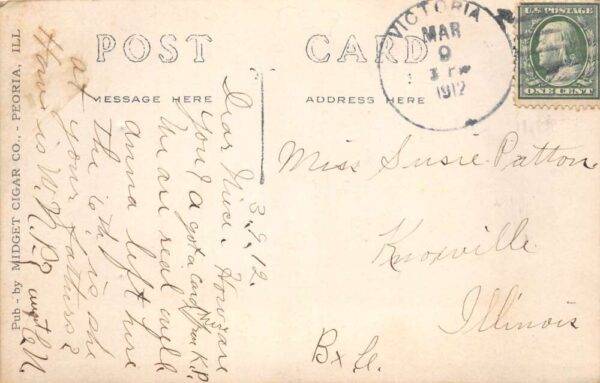 POST CARD
VICTORIA
MAR
9
3 PM
1912
U.S. POSTAGE
ONE CENT
MESSAGE HERE
ADDRESS HERE
3.9.12.
Dear Niece. How are
you? I got a card from K.P.
We are real well
Anna left here
the is she
at your fathers?
How is W.N.P.
Miss Susie Patton
Knoxville
Illinois
Bx
Pub - by MIDGET CIGAR CO., - PEORIA, ILL